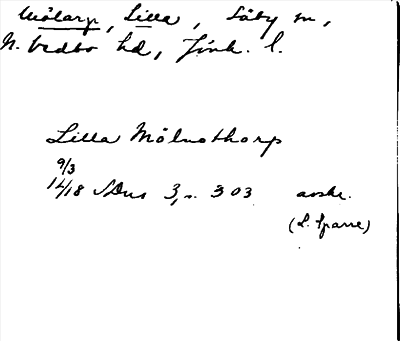 Mölarp, Lilla, Säby sn,
N. Vedbo hd, Jönk. l.
Lilla Mölnothorp
9/3
1418 SDns 3, s. 303 avskr.
(L. Sparre)